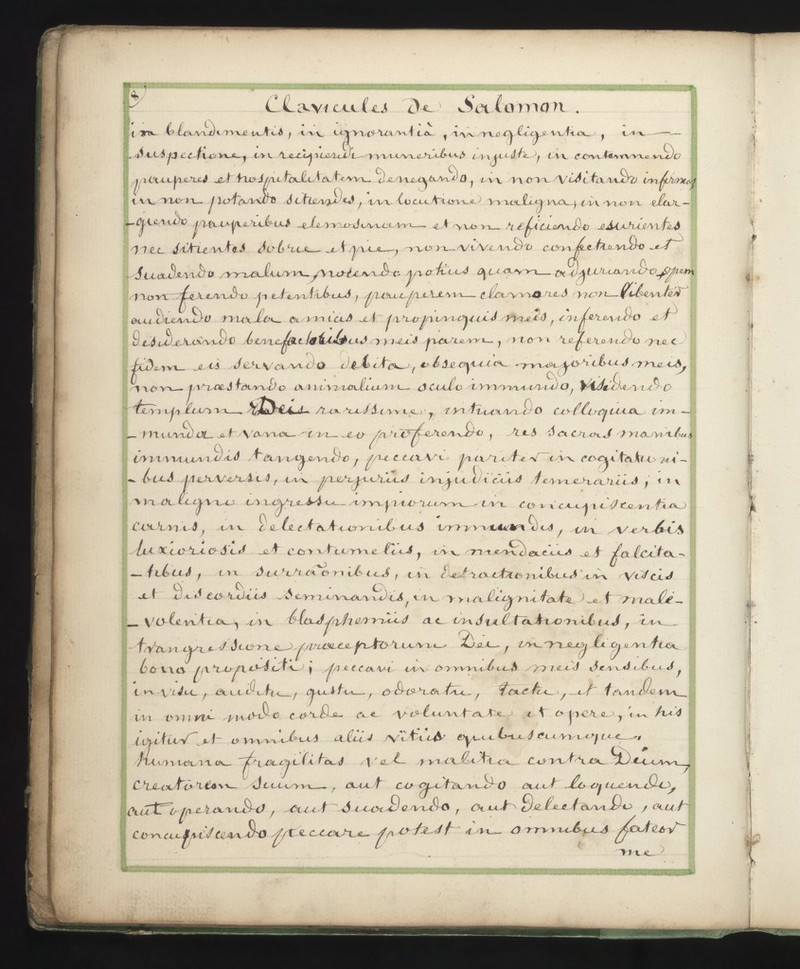 8)
Clavicules De Salomon.
in blandimentis, in ignorantiâ, in negligentia, in —
suspectione, in recipiendi muneribus injuste, in contemnendo
pauperes et hospitalitatem denegando, in non visitando infirmos
in non potando sitiendes, in locutione maligna, in non elar-
-giendo pauperibus elemosinam et non reficiendo esurientes
nec sitientes sobrie et pie, non vivendo confectiendo et
suadendo malum, nocendo potius quam adjuriando, opem
non ferendo petentibus, pauperem clamores non libenter
audiendo mala amicis et propinquis meis, inferendo et
desiderando benefactoribus meis parem, non referendo nec
fidem eis servando debita, obsequia majoribus meis,
non præstando animalium oculo immundo, visidendo
templum Dei rarissime, intuando colloquia im-
-munda et vana in eo proferendo, res sacras manibus
immundis tangendo, peccavi pariter in cogitatuni-
-bus perversis, in perjuriis injudiciis temerariis, in
maligni ingressu impiorum in concupiscentia
carnis, in delectationibus immundis, in verbis
luxioriosis et contumeliis, in mendaciis et falcita-
-tibus, in surraonibus, in detractionibus in viscis
et discordiis seminandis, in malignitate et male-
-volentia, in blasphemiis ac insultationibus, in
trangressione præceptorum Dei, in negligentia
bono propositi; peccavi in omnibus meis sensibus,
in visu, auditu, gustu, odoratu, tactu, et tandem
in omni modo corde ac voluntate et opere, in his
igitur et omnibus aliis vitiis quibuscumque,
humana fragilitas vel malitia contra Deum,
creatorem suum, aut cogitando aut loquendi,
aut operando, aut suadendo, aut delectando, aut
concupiscendo peccare potest in omnibus fateor
me